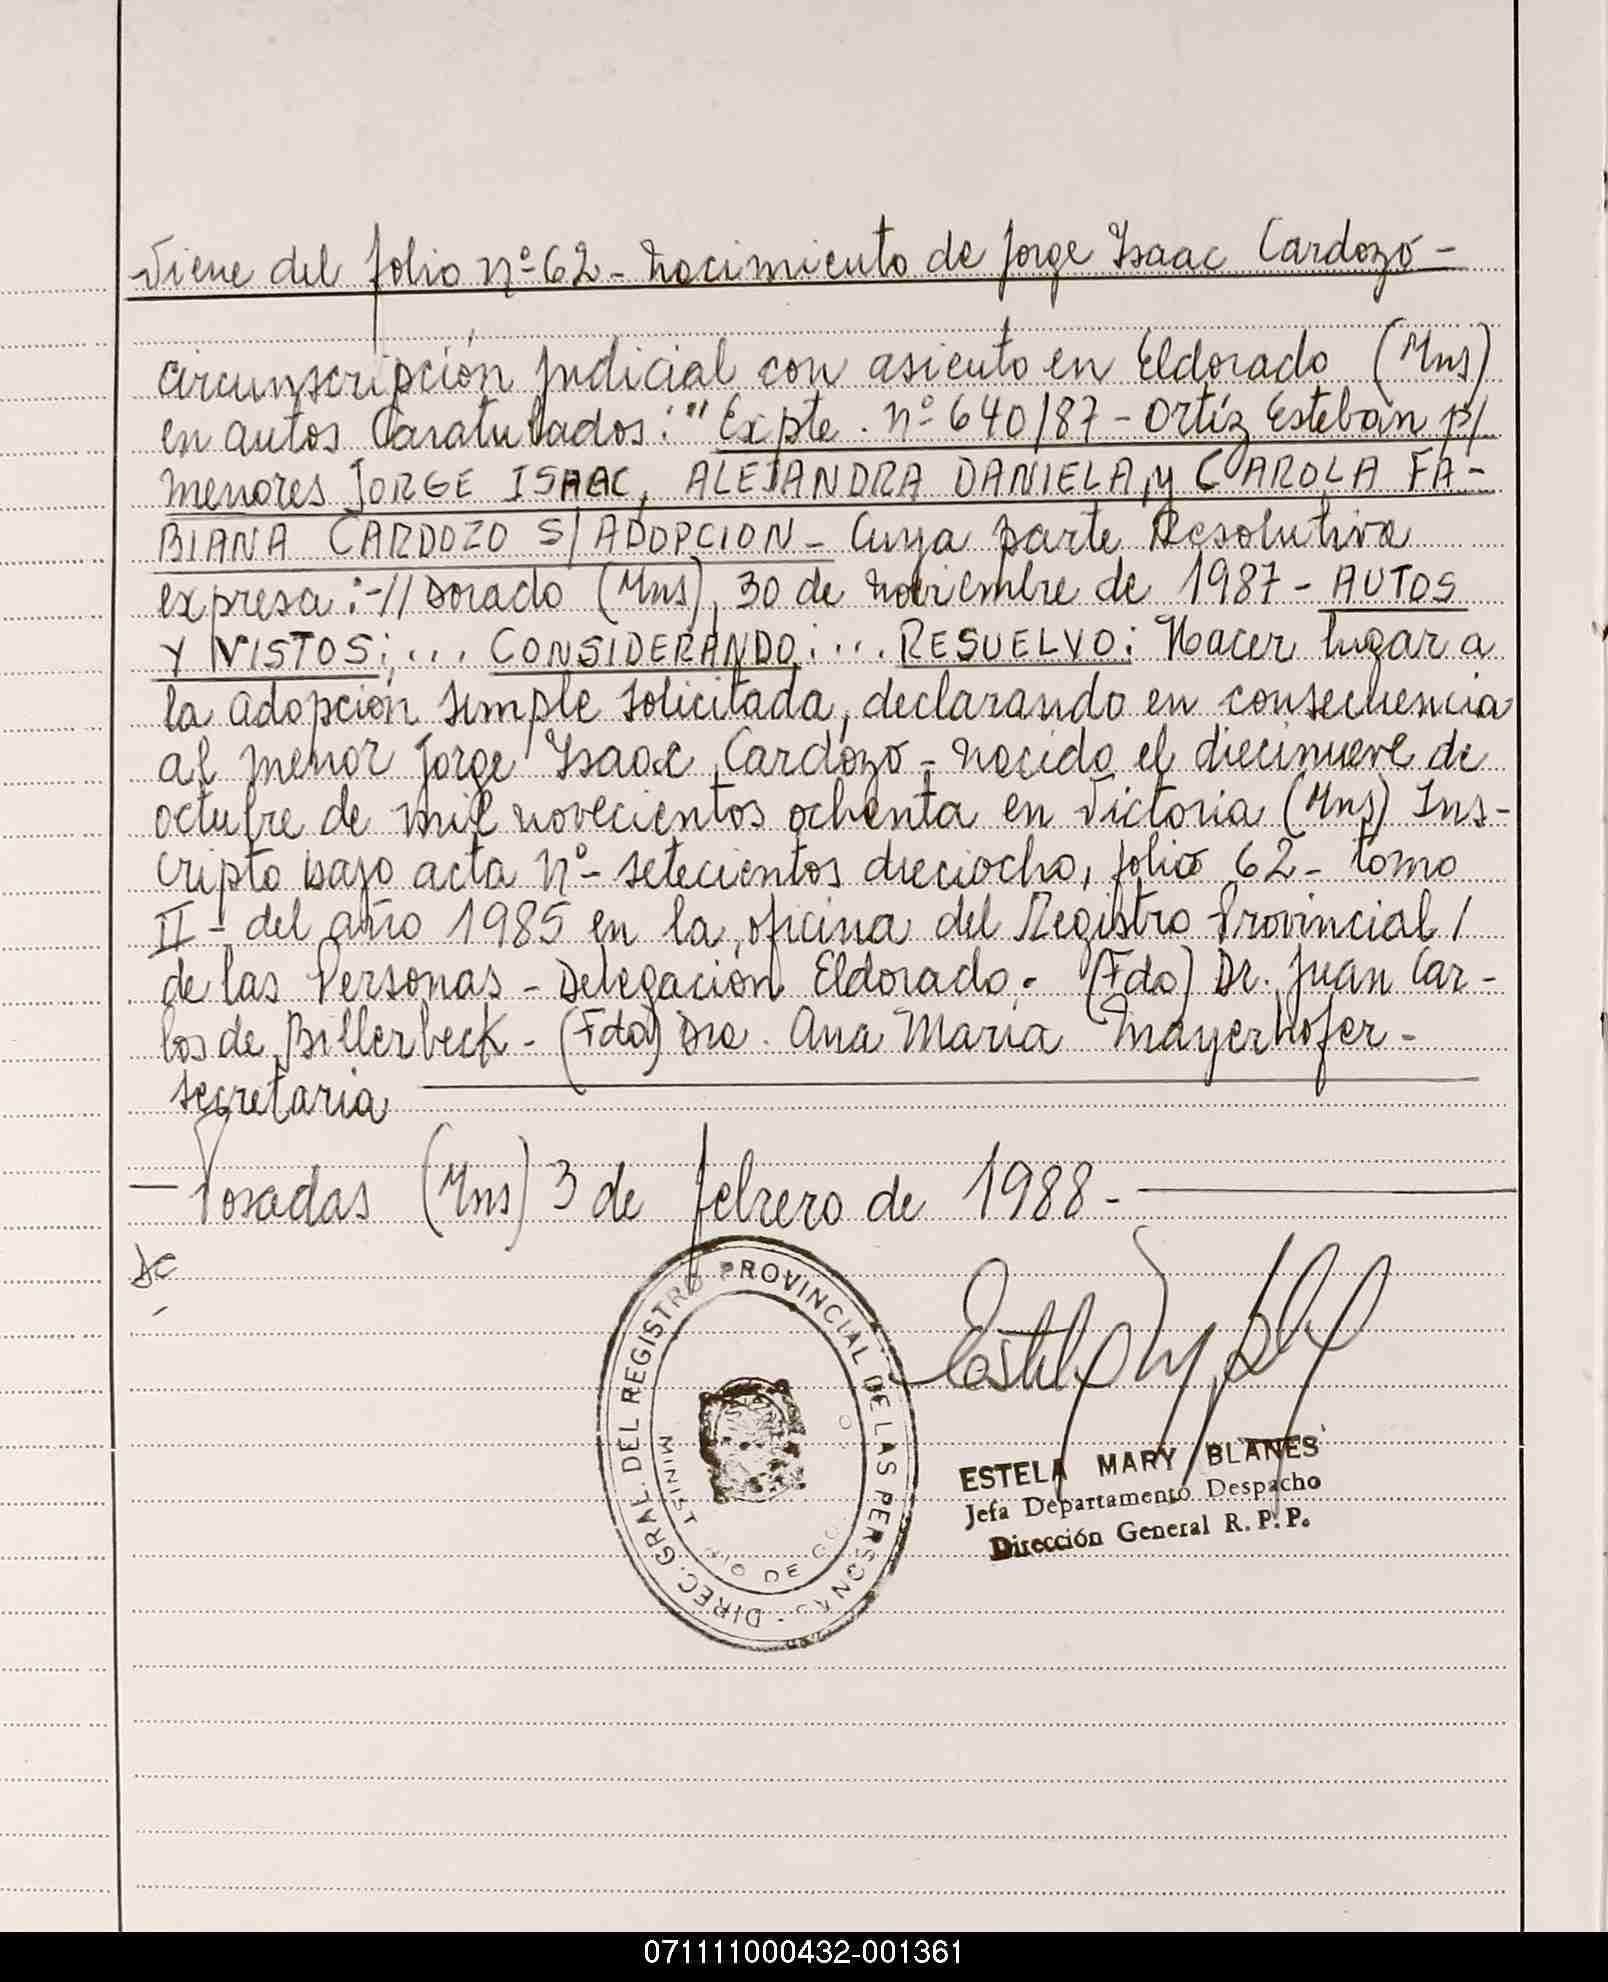 Viene del folio nº 62 - Nacimiento de Jorge Isaac Cardozo -
circunscripción judicial con asiento en Eldorado (Mns)
en autos Caratulados: "Expte. nº 640/87 - Ortíz Esteban p/
menores JORGE ISAAC, ALEJANDRA DANIELA, y CAROLA FA-
BIANA CARDOZO S/ ADOPCION - Cuya parte Resolutiva
expresa: -// Dorado (Mns), 30 de noviembre de 1987 - AUTOS
Y VISTOS; ... CONSIDERANDO: ... RESUELVO: Hacer lugar a
la adopción simple solicitada, declarando en consecuencia
al menor Jorge Isaac Cardozo - nacido el diecinueve de
octubre de mil novecientos ochenta en Victoria (Mns) Ins-
cripto bajo acta nº - setecientos dieciocho, folio 62 - tomo
II - del año 1985 en la oficina del Registro Provincial /
de las Personas - Delegación Eldorado. - (Fdo) Dr. Juan Car-
los de Billerbeck - (Fdo) Dra. Ana María Mayerhofer -
secretaria
— Posadas (Mns) 3 de febrero de 1988 -
DIREC. GRAL. DEL REGISTRO PROVINCIAL DE LAS PERSONAS
ESTELA MARY BLANES
Jefa Departamento Despacho
Dirección General R. P. P.
071111000432-001361